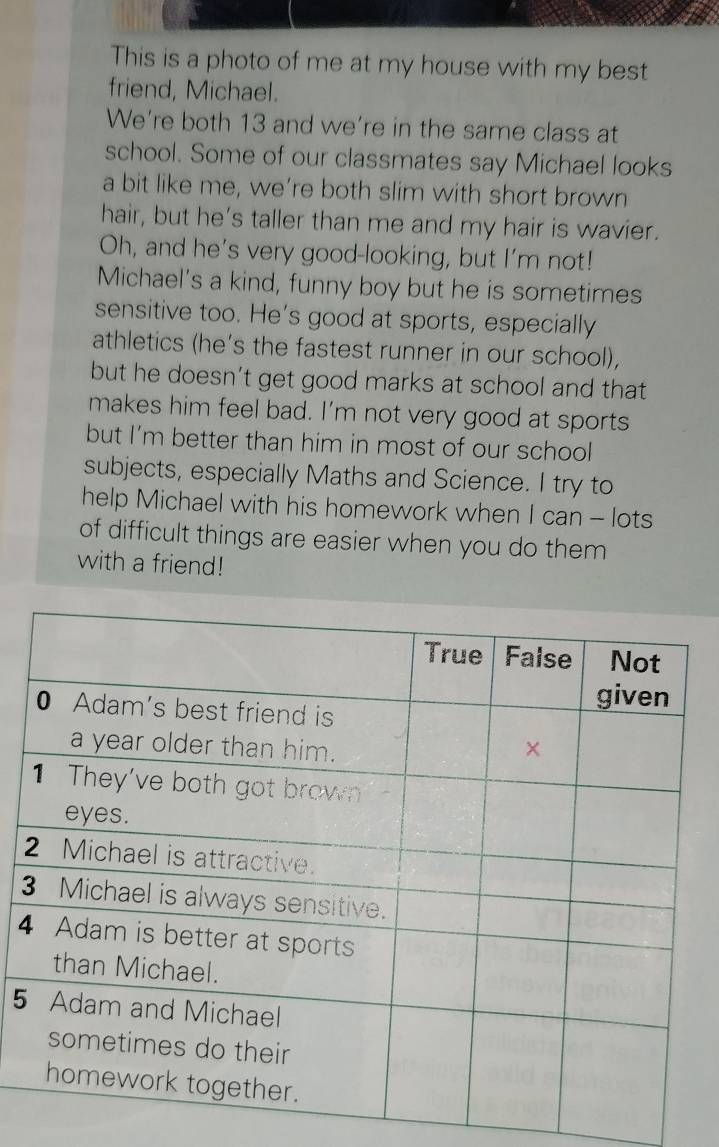 This is a photo of me at my house with my best
friend, Michael.
We're both 13 and we're in the same class at
school. Some of our classmates say Michael looks
a bit like me, we're both slim with short brown
hair, but he's taller than me and my hair is wavier.
Oh, and he's very good-looking, but I'm not!
Michael's a kind, funny boy but he is sometimes
sensitive too. He's good at sports, especially
athletics (he's the fastest runner in our school),
but he doesn't get good marks at school and that
makes him feel bad. I'm not very good at sports
but I'm better than him in most of our school
subjects, especially Maths and Science. I try to
help Michael with his homework when I can – lots
of difficult things are easier when you do them
with a friend!
True False Not
given
0 Adam's best friend is
a year older than him. x
1 They've both got brown
eyes.
2 Michael is attractive.
3 Michael is always sensitive.
4 Adam is better at sports
than Michael.
5 Adam and Michael
sometimes do their
homework together.